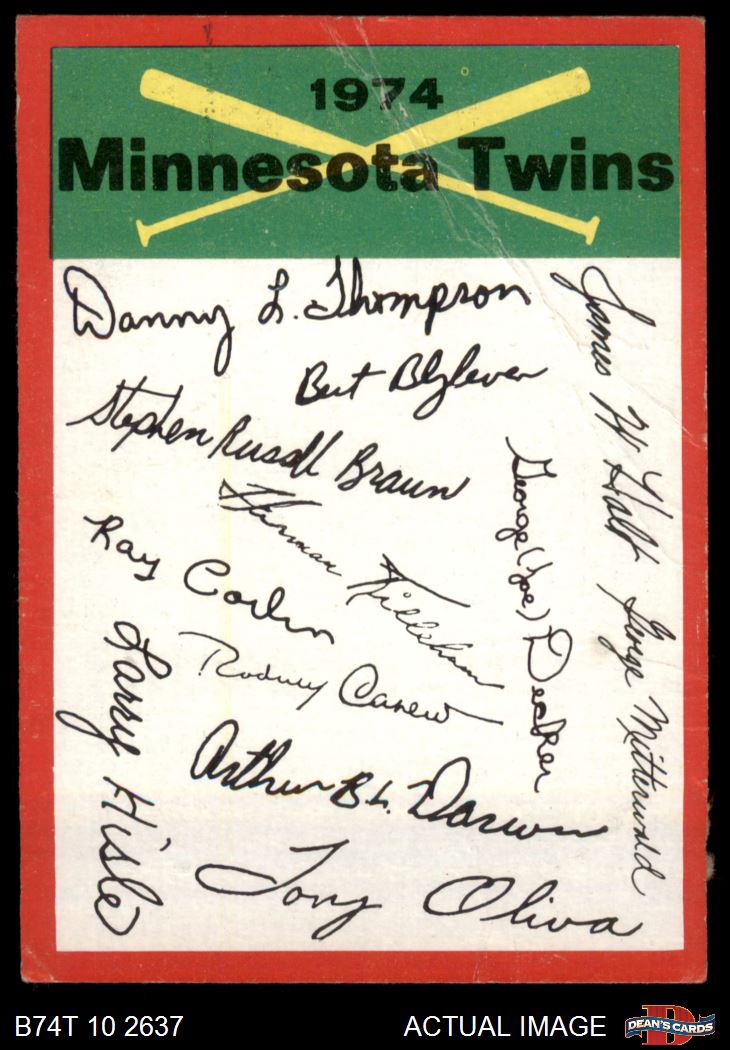 1974
Minnesota Twins
Danny L. Thompson
Bert Blyleven
Stephen Russell Braun
James W Holt
George (Joe) Decker
Harmon Killebrew
Ray Corbin
George Mitterwald
Rodney Carew
Larry Hisle
Arthur B L. Darwin
Tony Oliva
B74T 10 2637
ACTUAL IMAGE
D
DEAN'S CARDS